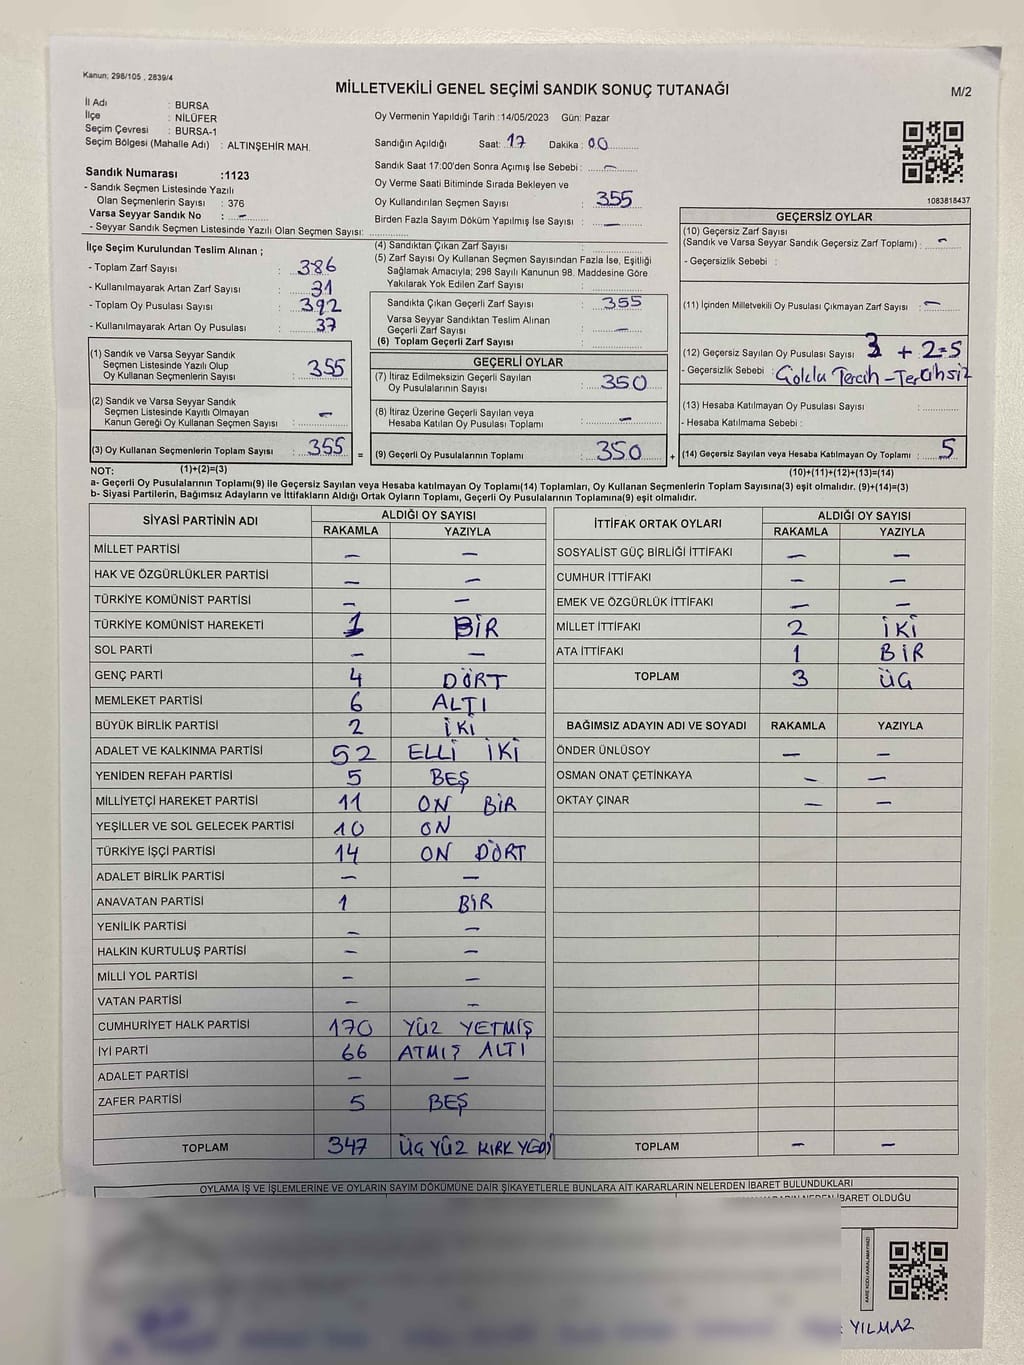 Kanun; 298/105 , 2839/4
MİLLETVEKİLİ GENEL SEÇİMİ SANDIK SONUÇ TUTANAĞI
M/2
İl Adı : BURSA
İlçe : NİLÜFER
Seçim Çevresi : BURSA-1
Seçim Bölgesi (Mahalle Adı) : ALTINŞEHİR MAH.
Oy Vermenin Yapıldığı Tarih :14/05/2023 Gün: Pazar
Sandığın Açıldığı Saat: 17 Dakika : 00
Sandık Saat 17:00'den Sonra Açımış İse Sebebi : –
Oy Verme Saati Bitiminde Sırada Bekleyen ve
Oy Kullandırılan Seçmen Sayısı : 355
Birden Fazla Sayım Döküm Yapılmış İse Sayısı : –
1083818437
Sandık Numarası :1123
- Sandık Seçmen Listesinde Yazılı
Olan Seçmenlerin Sayısı : 376
Varsa Seyyar Sandık No : –
- Seyyar Sandık Seçmen Listesinde Yazılı Olan Seçmen Sayısı:
İlçe Seçim Kurulundan Teslim Alınan ;
- Toplam Zarf Sayısı : 386
- Kullanılmayarak Artan Zarf Sayısı : 31
- Toplam Oy Pusulası Sayısı : 392
- Kullanılmayarak Artan Oy Pusulası : 37
(1) Sandık ve Varsa Seyyar Sandık
Seçmen Listesinde Yazılı Olup
Oy Kullanan Seçmenlerin Sayısı : 355
(2) Sandık ve Varsa Seyyar Sandık
Seçmen Listesinde Kayıtlı Olmayan
Kanun Gereği Oy Kullanan Seçmen Sayısı : –
(3) Oy Kullanan Seçmenlerin Toplam Sayısı : 355
(4) Sandıktan Çıkan Zarf Sayısı :
(5) Zarf Sayısı Oy Kullanan Seçmen Sayısından Fazla İse, Eşitliği
Sağlamak Amacıyla; 298 Sayılı Kanunun 98. Maddesine Göre
Yakılarak Yok Edilen Zarf Sayısı :
Sandıkta Çıkan Geçerli Zarf Sayısı : 355
Varsa Seyyar Sandıktan Teslim Alınan
Geçerli Zarf Sayısı : –
(6) Toplam Geçerli Zarf Sayısı :
GEÇERLİ OYLAR
(7) İtiraz Edilmeksizin Geçerli Sayılan
Oy Pusulalarının Sayısı : 350
(8) İtiraz Üzerine Geçerli Sayılan veya
Hesaba Katılan Oy Pusulası Toplamı : –
= (9) Geçerli Oy Pusulalarının Toplamı : 350
GEÇERSİZ OYLAR
(10) Geçersiz Zarf Sayısı
(Sandık ve Varsa Seyyar Sandık Geçersiz Zarf Toplamı) : –
- Geçersizlik Sebebi :
(11) İçinden Milletvekili Oy Pusulası Çıkmayan Zarf Sayısı : –
(12) Geçersiz Sayılan Oy Pusulası Sayısı 3 + 2=5
- Geçersizlik Sebebi : Çoklu Tercih – Tercihsiz
(13) Hesaba Katılmayan Oy Pusulası Sayısı :
- Hesaba Katılmama Sebebi :
+ (14) Geçersiz Sayılan veya Hesaba Katılmayan Oy Toplamı : 5
NOT: (1)+(2)=(3) (10)+(11)+(12)+(13)=(14)
a- Geçerli Oy Pusulalarının Toplamı(9) ile Geçersiz Sayılan veya Hesaba katılmayan Oy Toplamı(14) Toplamları, Oy Kullanan Seçmenlerin Toplam Sayısına(3) eşit olmalıdır. (9)+(14)=(3)
b- Siyasi Partilerin, Bağımsız Adayların ve İttifakların Aldığı Ortak Oyların Toplamı, Geçerli Oy Pusulalarının Toplamına(9) eşit olmalıdır.
SİYASİ PARTİNİN ADI ALDIĞI OY SAYISI
RAKAMLA YAZIYLA
MİLLET PARTİSİ – –
HAK VE ÖZGÜRLÜKLER PARTİSİ – –
TÜRKİYE KOMÜNİST PARTİSİ – –
TÜRKİYE KOMÜNİST HAREKETİ 1 BİR
SOL PARTİ – –
GENÇ PARTİ 4 DÖRT
MEMLEKET PARTİSİ 6 ALTI
BÜYÜK BİRLİK PARTİSİ 2 İKİ
ADALET VE KALKINMA PARTİSİ 52 ELLİ İKİ
YENİDEN REFAH PARTİSİ 5 BEŞ
MİLLİYETÇİ HAREKET PARTİSİ 11 ON BİR
YEŞİLLER VE SOL GELECEK PARTİSİ 10 ON
TÜRKİYE İŞÇİ PARTİSİ 14 ON DÖRT
ADALET BİRLİK PARTİSİ – –
ANAVATAN PARTİSİ 1 BİR
YENİLİK PARTİSİ – –
HALKIN KURTULUŞ PARTİSİ – –
MİLLİ YOL PARTİSİ – –
VATAN PARTİSİ – –
CUMHURİYET HALK PARTİSİ 170 YÜZ YETMİŞ
İYİ PARTİ 66 ATMIŞ ALTI
ADALET PARTİSİ – –
ZAFER PARTİSİ 5 BEŞ
TOPLAM 347 ÜÇ YÜZ KIRK YEDİ
İTTİFAK ORTAK OYLARI ALDIĞI OY SAYISI
RAKAMLA YAZIYLA
SOSYALİST GÜÇ BİRLİĞİ İTTİFAKI – –
CUMHUR İTTİFAKI – –
EMEK VE ÖZGÜRLÜK İTTİFAKI – –
MİLLET İTTİFAKI 2 İKİ
ATA İTTİFAKI 1 BİR
TOPLAM 3 ÜÇ
BAĞIMSIZ ADAYIN ADI VE SOYADI RAKAMLA YAZIYLA
ÖNDER ÜNLÜSOY – –
OSMAN ONAT ÇETİNKAYA – –
OKTAY ÇINAR – –
TOPLAM – –
OYLAMA İŞ VE İŞLEMLERİNE VE OYLARIN SAYIM DÖKÜMÜNE DAİR ŞİKAYETLERLE BUNLARA AİT KARARLARIN NELERDEN İBARET BULUNDUKLARI
İBARET OLDUĞU
YILMAZ